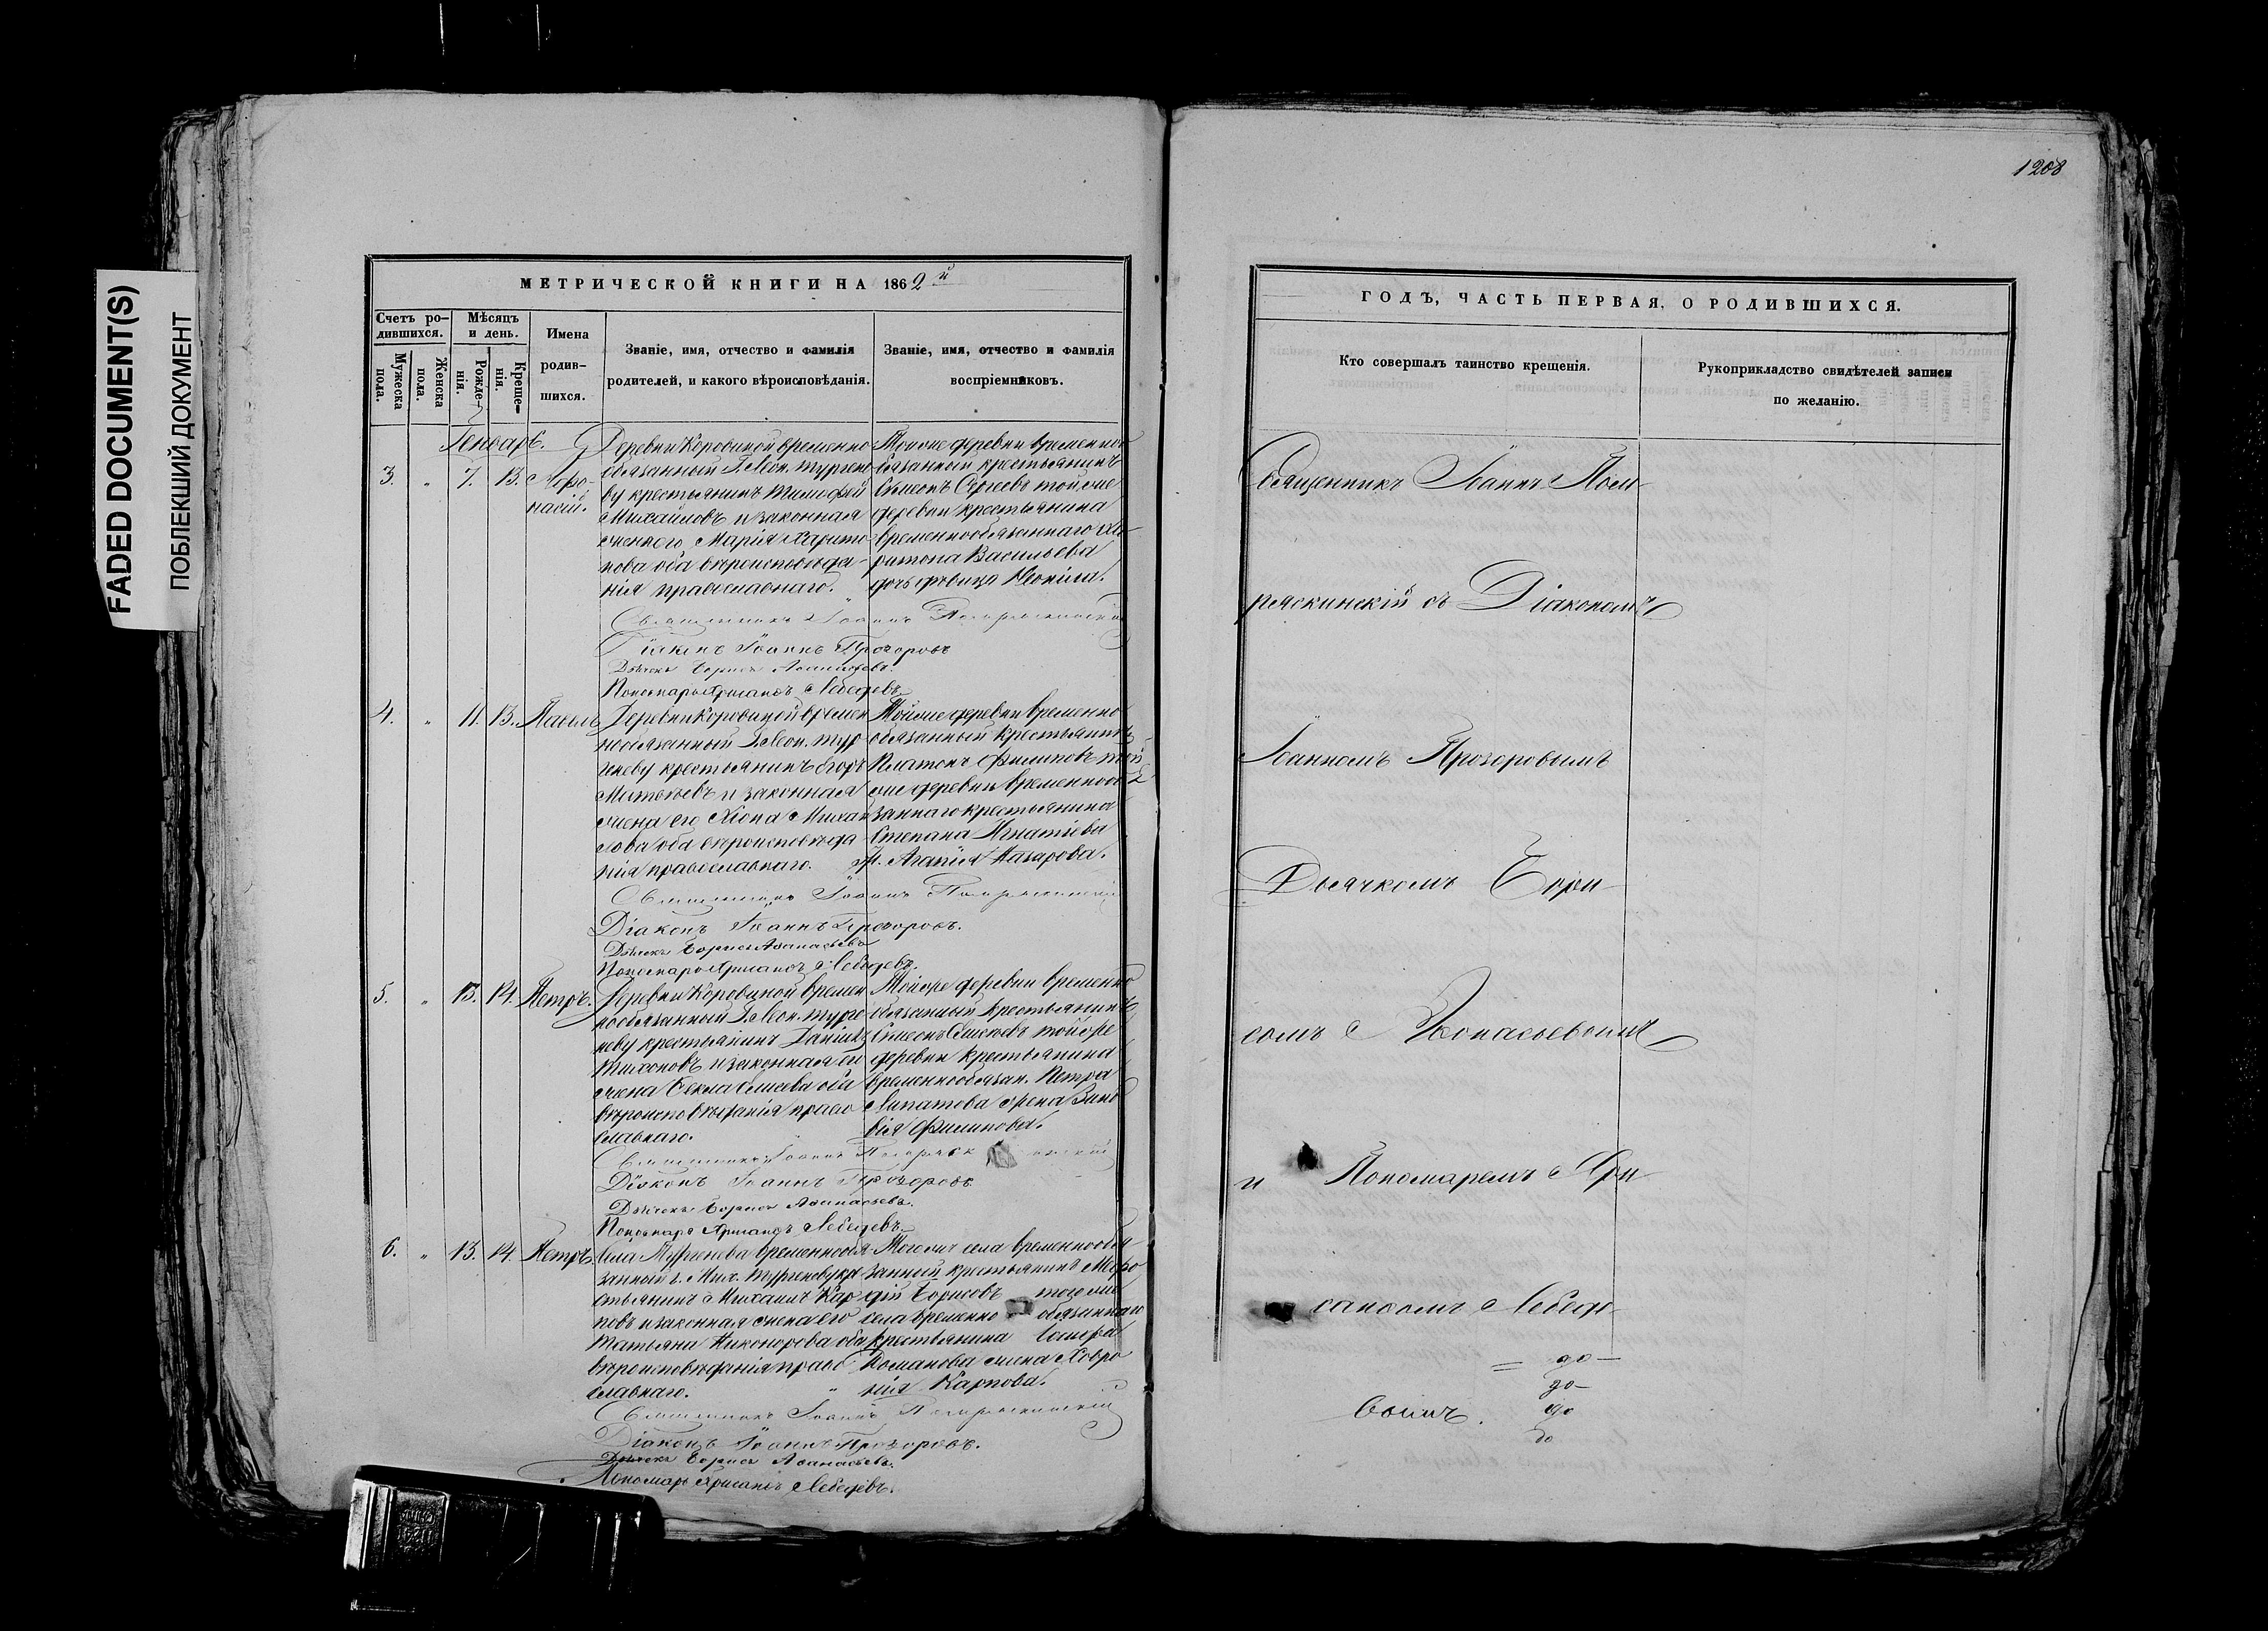 FADED DOCUMENT(S)
ПОБЛЕКШИЙ ДОКУМЕНТ
1208
МЕТРИЧЕСКОЙ КНИГИ НА 1862й
Счетъ ро-
дившихся.
Мужеска пола.
Женска пола.
Мѣсяцъ и день.
Рожде-
нія.
Креще-
нія.
Имена
родив-
шихся.
Званіе, имя, отчество и фамилія
родителей, и какого вѣроисповѣданія.
Званіе, имя, отчество и фамилія
воспріемниковъ.
Генварь.
3. " 7. 13. Афо-
насій.
Деревни Коровиной временно
обязанный Г. Леон. Тургене
ву крестьянинъ Тимофей
Михайловъ и законная
жена его Марія Харито
нова оба вѣроисповѣда-
нія православнаго.
Тойже деревни временно
обязанный крестьянинъ
Симеонъ Сергеевъ тойже
деревни крестьянина
временнообязаннаго Ха-
ритона Васильева
дочь дѣвица Неонила.
Священникъ Іоаннъ
Діаконъ Іоаннъ Прозоровъ
Дьячекъ Борисъ Аѳанасьевъ.
Пономарь Хрисанѳъ Лебедевъ.
4. " 11. 13. Павелъ
Деревни Коровиной времен
нообязанный Г. Леон. Тур
геневу крестьянинъ Егоръ
Матвѣевъ и законная
жена его Хіона Михаи
лова оба вѣроисповѣда
нія православнаго.
Тойже деревни временно
обязанный крестьянинъ
Платонъ Филиповъ той
же деревни временнообя
заннаго крестьянина
Степана Игнатіева
ж. Агапія Назарова.
Священникъ Іоаннъ
Діаконъ Іоаннъ Прозоровъ.
Дьячекъ Борисъ Аѳанасьевъ
Пономарь Хрисанѳъ Лебедевъ.
5. " 13. 14. Петръ.
Деревни Коровиной времен
нообязанный Г. Леон. Турге
неву крестьянинъ Даніилъ
Тихоновъ и законная его
жена Ѳекла Елисеева оба
вѣроисповѣданія право
славнаго.
Тойже деревни временно
обязанный крестьянинъ
Симеонъ Елисеевъ тойже
деревни крестьянина
временнообязан. Петра
Липатова жена Зино
вія Филипова.
Священникъ Іоаннъ
Діаконъ Іоаннъ Прозоровъ
Дьячекъ Борисъ Аѳанасьевъ.
Пономарь Хрисанѳъ Лебедевъ.
6. " 13. 14. Петръ.
Села Тургенева временнообя
занный г. Мих. Тургеневу кре
стьянинъ Михаилъ Кар
повъ и законная жена его
Татьяна Никонорова оба
вѣроисповѣданія право
славнаго.
Тогоже села временнообя-
занный крестьянинъ Меѳо
дій Борисовъ тогоже
села временно обязаннаго
крестьянина
Романова жена Ховро
нія Карпова.
Священникъ Іоаннъ
Діаконъ Іоаннъ Прозоровъ.
Дьячекъ Борисъ Аѳанасьевъ.
Пономарь Хрисанѳъ Лебедевъ.
ГОДЪ, ЧАСТЬ ПЕРВАЯ, О РОДИВШИХСЯ.
Кто совершалъ таинство крещенія.
Рукоприкладство свидѣтелей записи
по желанію.
Священникъ Іоаннъ Пом-
ряскинскій съ Діакономъ
Іоанномъ Прозоровымъ
Дьячкомъ Бори-
сомъ Аѳонасьевымъ
и Пономаремъ Хри-
санѳомъ Лебеде-
вымъ.